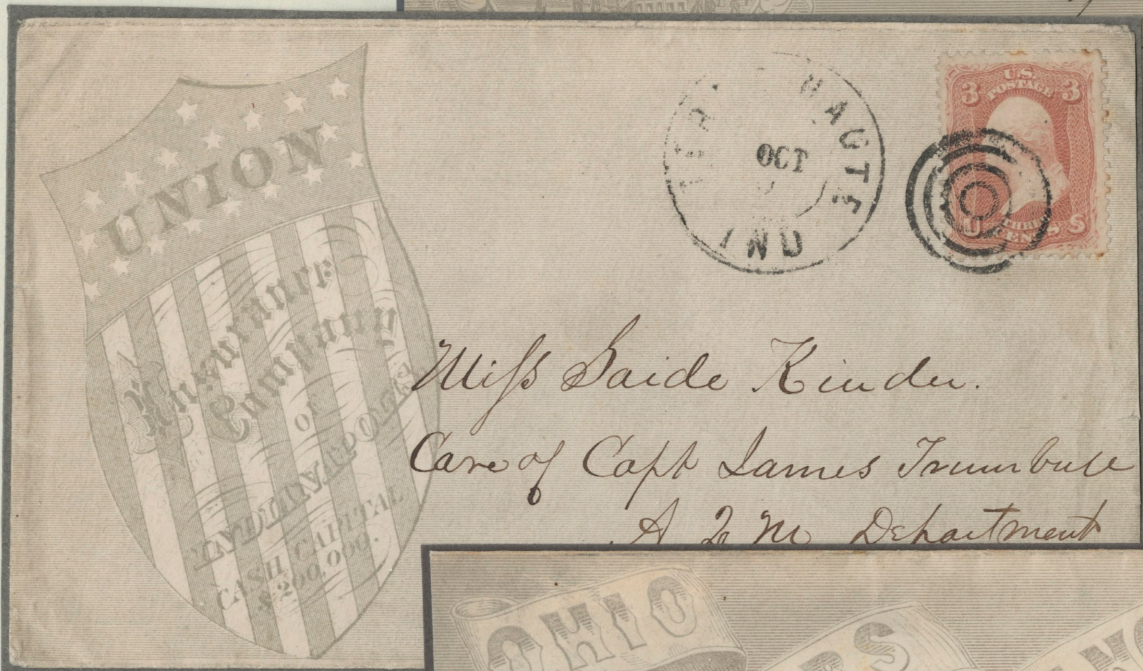 UNION
Insurance
Company
OF
INDIANAPOLIS
CASH CAPITAL
$200,000.
TERRE HAUTE
OCT
IND
U.S.
POSTAGE
3 3
THREE
CENTS
U S
Miss Saide Kinder.
Care of Capt James Trumbull
A Q M Department
OHIO